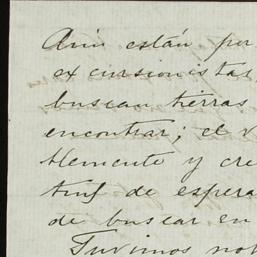 Aún están por
excursionistas
buscan tierras
encontrar; el v
tlemente y cre
de espera
de buscar en
Tuvimos not